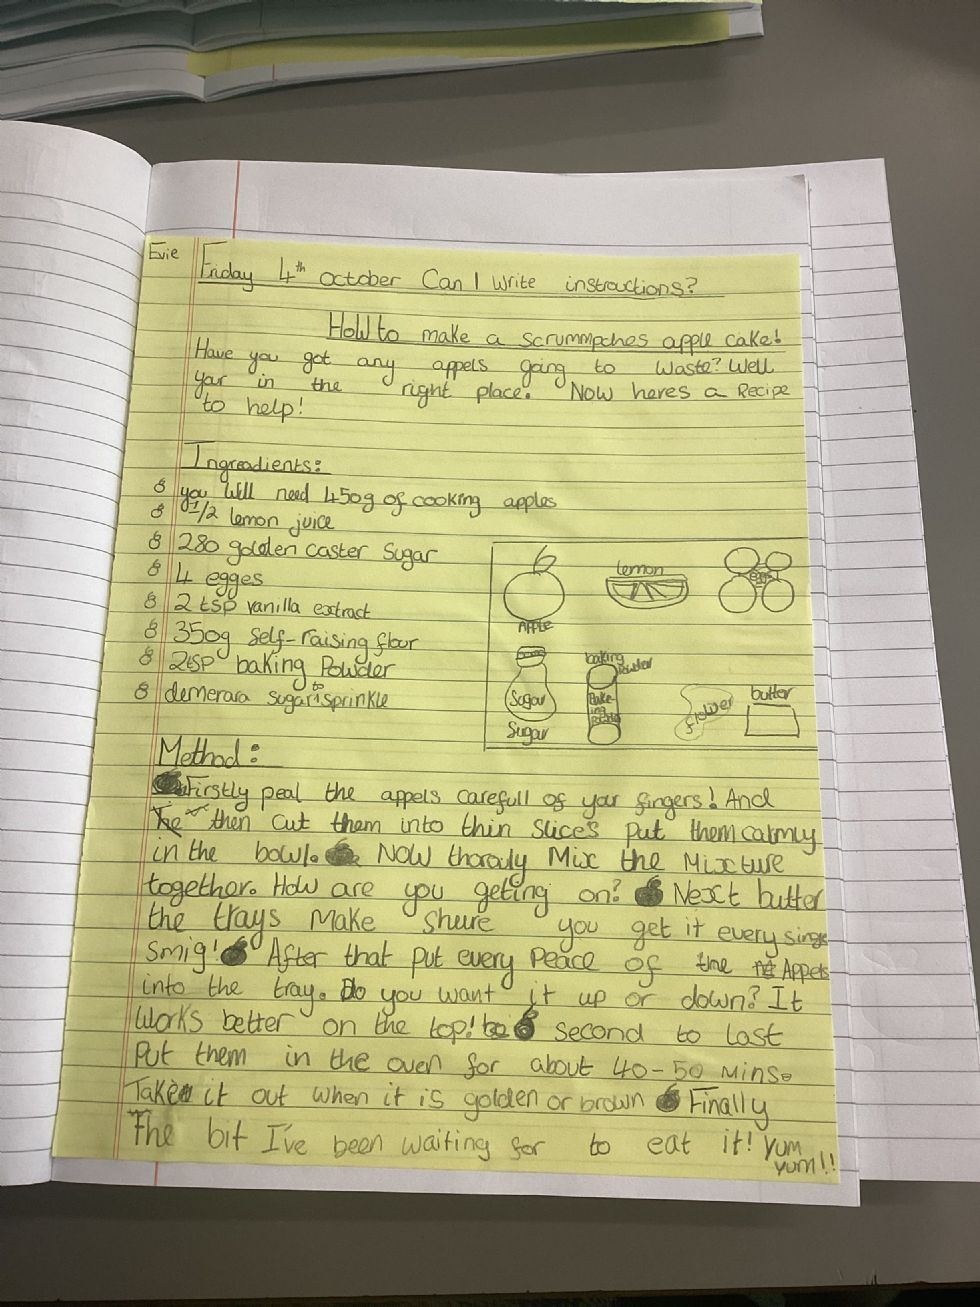 Evie
Friday 4th october Can I write instructions?
How to make a scrummpches apple cake!
Have you got any appels going to waste? Well
your in the right place. Now heres a Recipe
to help!
Ingreadients:
you Will need 450g of cooking apples
1/2 lemon juice
280 golden caster Sugar
4 egges
2 tsp vanilla extract
350g self-raising flour
2tsp baking Powder
demerara sugar to sprinkle
lemon
eggs
Apple
baking powder
Sugar
Bake-
ing
Sugar
flower
butter
Method:
Firstly peal the appels carefull of your fingers! And
then cut them into thin slices put them calmly
in the bowl. Now thoraly Mix the Mixture
together. How are you geting on? Next butter
the trays Make shure you get it every single
smig! After that put every Peace of the Appels
into the tray. Do you want it up or down? It
works better on the top! second to last
Put them in the oven for about 40-50 mins.
Take it out when it is golden or brown Finally
The bit I've been waiting for to eat it! Yum
yum!!